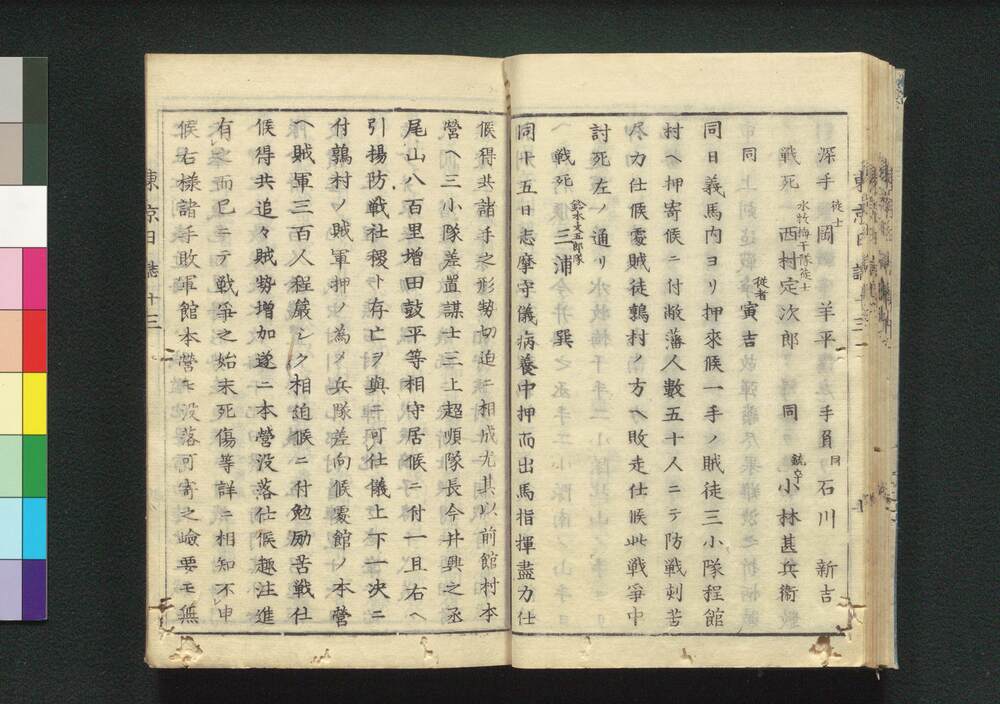 深手 徒士 岡 羊平 手負 同 石川 新吉
戦死 水牧梅干隊徒士 西村定次郎 同 銃卒 小林甚兵衞
同 従者 寅吉
同日義馬内ヨリ押來候一手ノ賊徒三小隊程館
村ヘ押寄候ニ付敝藩人數五十人ニテ防戦刻苦
尽力仕候處賊徒鶉村ノ方ヘ敗走仕候此戦爭中
討死左ノ通リ
戦死 鈴木文五郎隊 三浦 巽
同十五日志摩守儀病養中押而出馬指揮盡力仕
候得共諸手之形勢切迫ニ相成尤其以前館村本
營ヘ三小隊差置謀士三上超順隊長今井興之丞
尾山八百里増田鼓平等相守居候ニ付一旦右ヘ
引揚防戦社稷ト存亡ヲ與ニ可仕儀上下一決ニ
付鶉村ノ賊軍押ノ為メ兵隊差向候處館ノ本營
ヘ賊軍三百人程嚴シク相迫候ニ付勉励苦戦仕
候得共追々賊勢増加遂ニ本營没落仕候趣注進
有之而已ニテ戦爭之始末死傷等詳ニ相知不申
候右様諸手敗軍館本營モ没落可寄之嶮要モ無
東京日誌十三